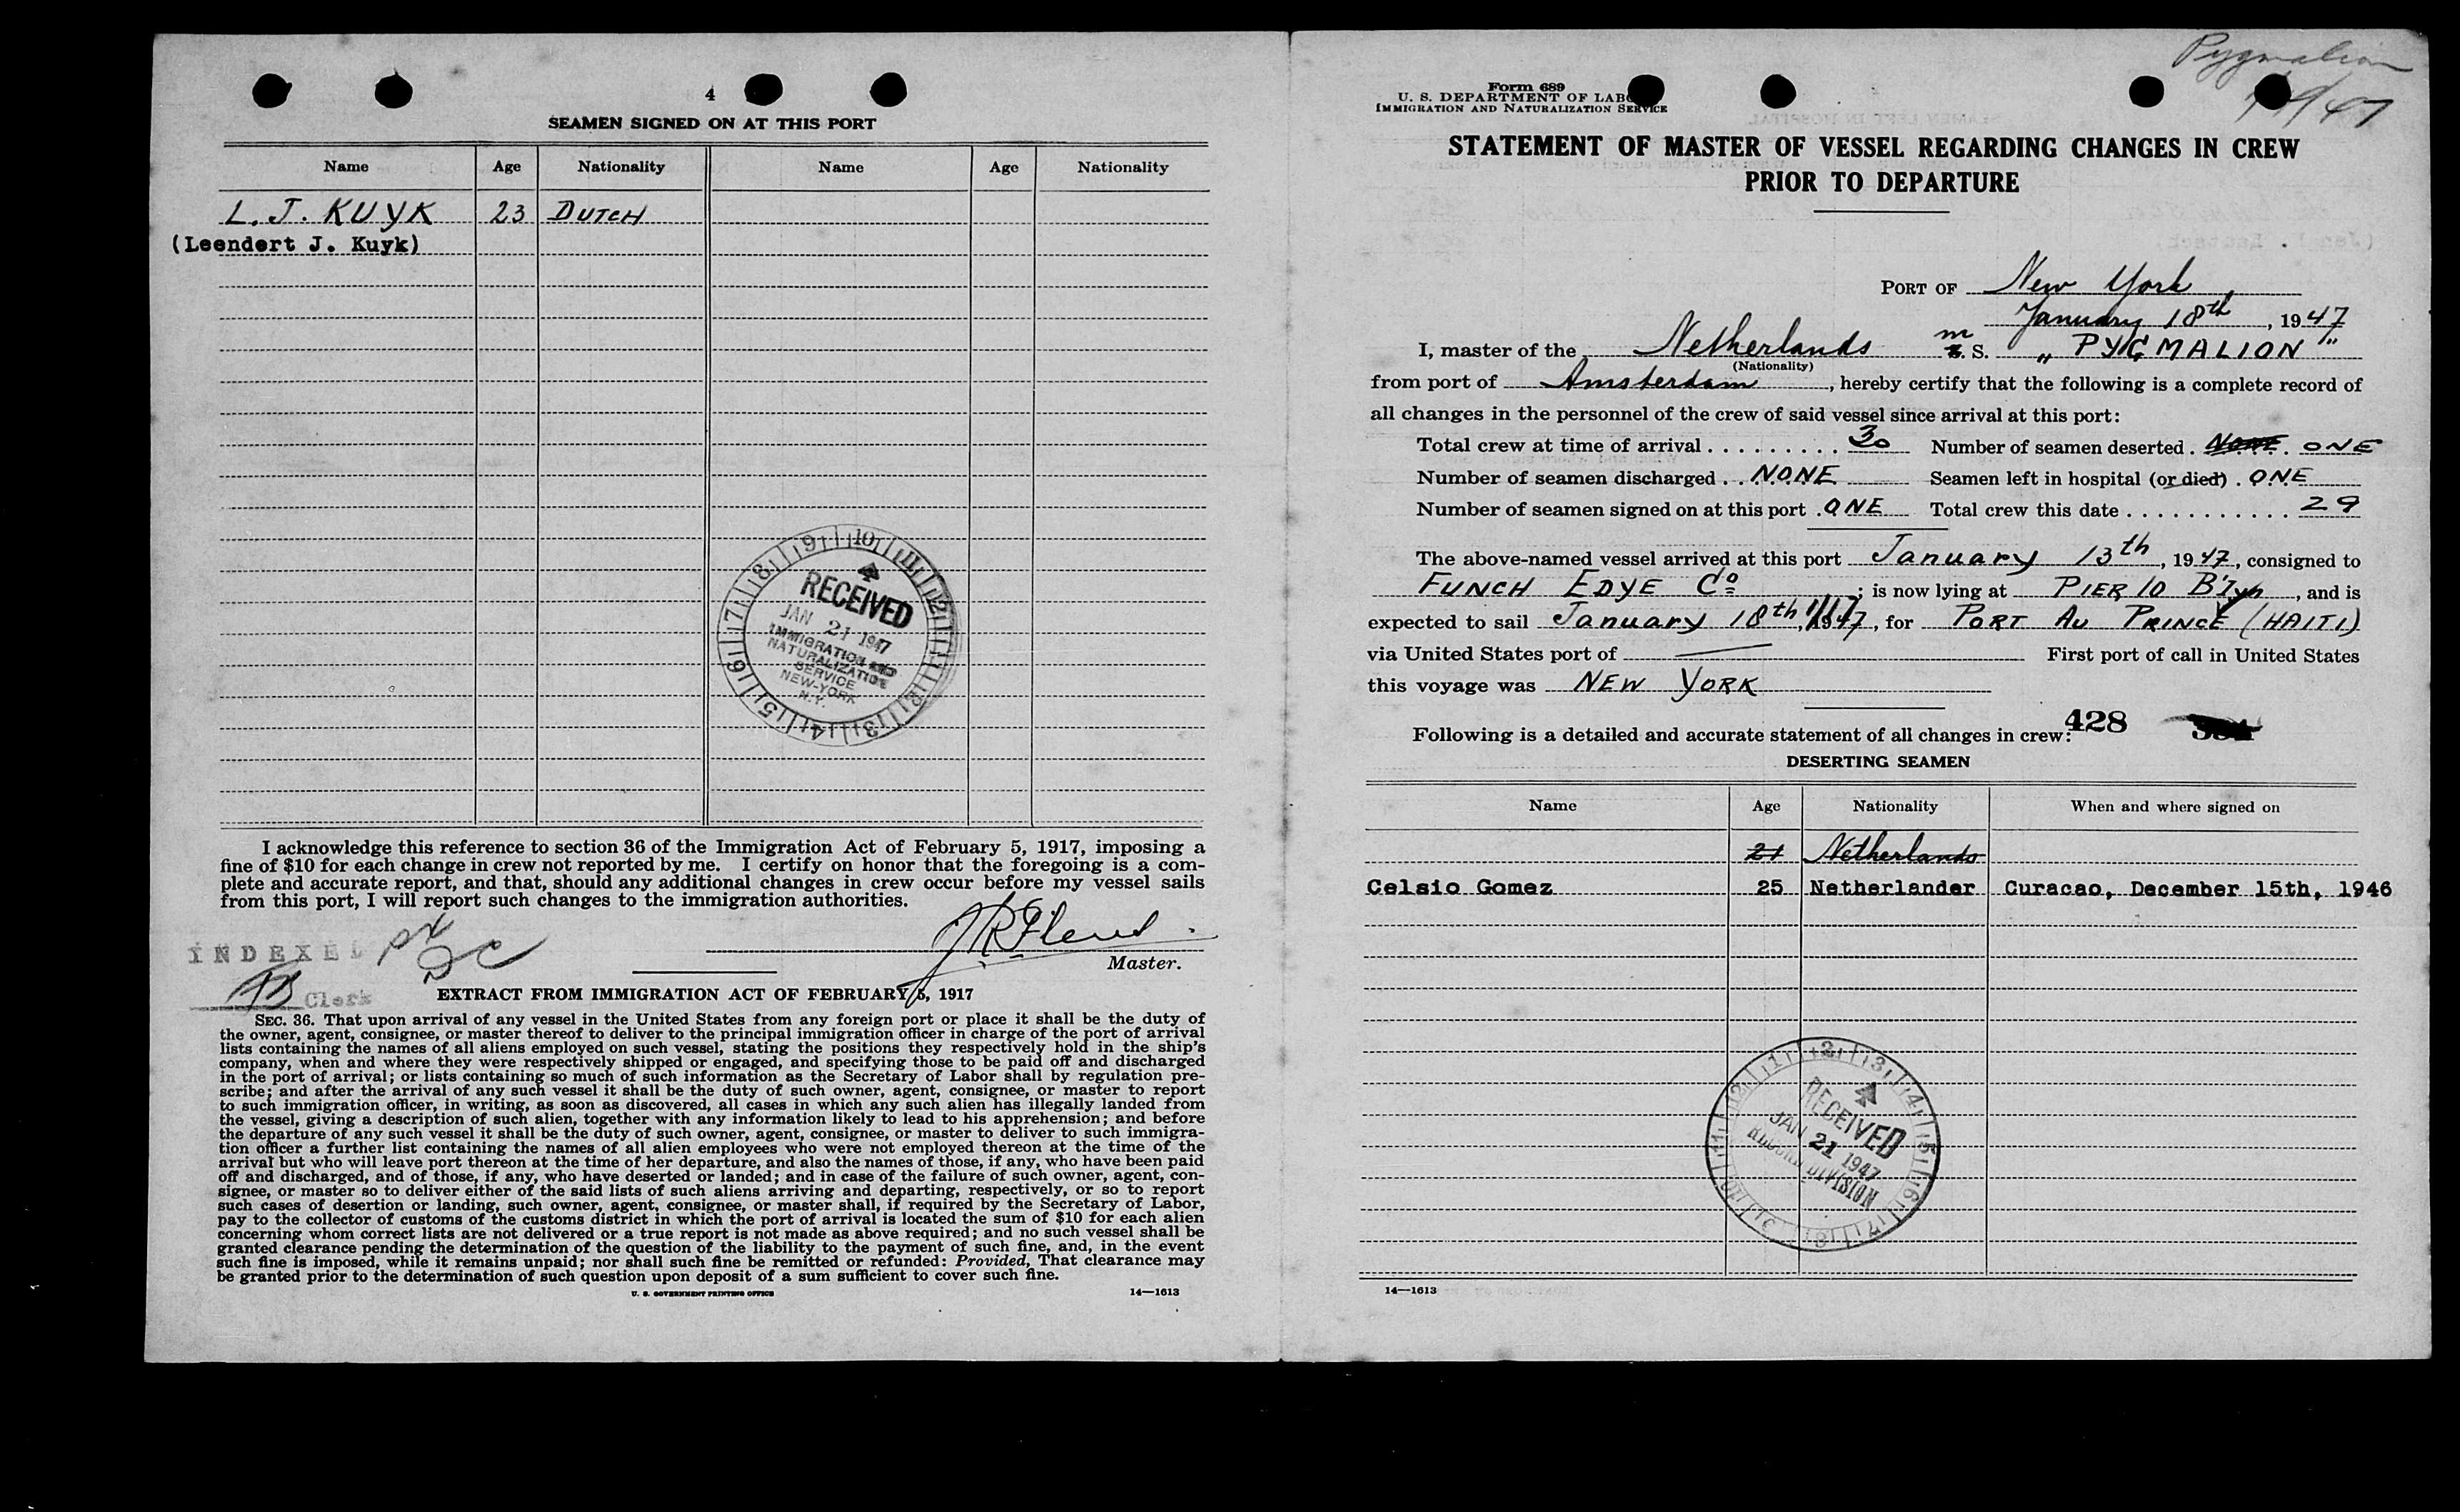 4
SEAMEN SIGNED ON AT THIS PORT
Name Age Nationality Name Age Nationality
L. J. KUYK 23 DUTCH
(Leendert J. Kuyk)
RECEIVED
JAN 21 1947
IMMIGRATION AND
NATURALIZATION
SERVICE
NEW-YORK
N.Y.
I acknowledge this reference to section 36 of the Immigration Act of February 5, 1917, imposing a
fine of $10 for each change in crew not reported by me. I certify on honor that the foregoing is a com-
plete and accurate report, and that, should any additional changes in crew occur before my vessel sails
from this port, I will report such changes to the immigration authorities.
INDEXED
Master.
Clerk
EXTRACT FROM IMMIGRATION ACT OF FEBRUARY 5, 1917
SEC. 36. That upon arrival of any vessel in the United States from any foreign port or place it shall be the duty of
the owner, agent, consignee, or master thereof to deliver to the principal immigration officer in charge of the port of arrival
lists containing the names of all aliens employed on such vessel, stating the positions they respectively hold in the ship's
company, when and where they were respectively shipped or engaged, and specifying those to be paid off and discharged
in the port of arrival; or lists containing so much of such information as the Secretary of Labor shall by regulation pre-
scribe; and after the arrival of any such vessel it shall be the duty of such owner, agent, consignee, or master to report
to such immigration officer, in writing, as soon as discovered, all cases in which any such alien has illegally landed from
the vessel, giving a description of such alien, together with any information likely to lead to his apprehension; and before
the departure of any such vessel it shall be the duty of such owner, agent, consignee, or master to deliver to such immigra-
tion officer a further list containing the names of all alien employees who were not employed thereon at the time of the
arrival but who will leave port thereon at the time of her departure, and also the names of those, if any, who have been paid
off and discharged, and of those, if any, who have deserted or landed; and in case of the failure of such owner, agent, con-
signee, or master so to deliver either of the said lists of such aliens arriving and departing, respectively, or so to report
such cases of desertion or landing, such owner, agent, consignee, or master shall, if required by the Secretary of Labor,
pay to the collector of customs of the customs district in which the port of arrival is located the sum of $10 for each alien
concerning whom correct lists are not delivered or a true report is not made as above required; and no such vessel shall be
granted clearance pending the determination of the question of the liability to the payment of such fine, and, in the event
such fine is imposed, while it remains unpaid; nor shall such fine be remitted or refunded: Provided, That clearance may
be granted prior to the determination of such question upon deposit of a sum sufficient to cover such fine.
U. S. GOVERNMENT PRINTING OFFICE 14—1613
Pygmalion
Form 689
U. S. DEPARTMENT OF LABOR
IMMIGRATION AND NATURALIZATION SERVICE
STATEMENT OF MASTER OF VESSEL REGARDING CHANGES IN CREW
PRIOR TO DEPARTURE
PORT OF New York
January 18th, 1947
I, master of the Netherlands m S. "PYGMALION"
(Nationality)
from port of Amsterdam, hereby certify that the following is a complete record of
all changes in the personnel of the crew of said vessel since arrival at this port:
Total crew at time of arrival ......... 30 Number of seamen deserted . NONE. ONE
Number of seamen discharged .. NONE Seamen left in hospital (or died) . ONE
Number of seamen signed on at this port . ONE Total crew this date ........... 29
The above-named vessel arrived at this port January 13th, 1947, consigned to
FUNCH EDYE Co; is now lying at PIER 10 B'lyn, and is
expected to sail January 18th, 1947, for PORT AU PRINCE (HAITI)
via United States port of First port of call in United States
this voyage was NEW YORK
428
Following is a detailed and accurate statement of all changes in crew:
DESERTING SEAMEN
Name Age Nationality When and where signed on
21 Netherlands
Celsio Gomez 25 Netherlander Curacao, December 15th, 1946
RECEIVED
JAN 21 1947
RECORD DIVISION
14—1613